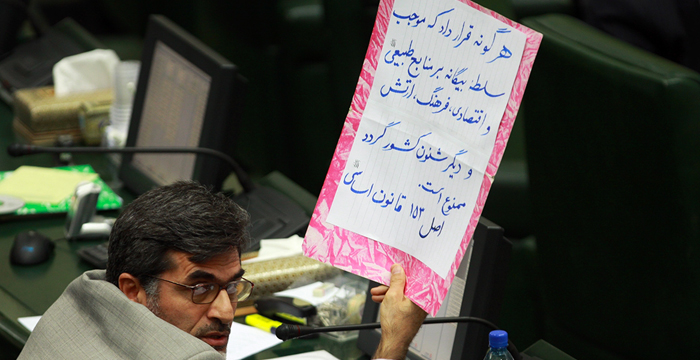 هرگونه قرارداد که موجب
سلطهٔ بیگانه بر منابع طبیعی
و اقتصادی، فرهنگ، ارتش
و دیگر شئون کشور گردد
ممنوع است.
اصل ۱۵۳ قانون اساسی